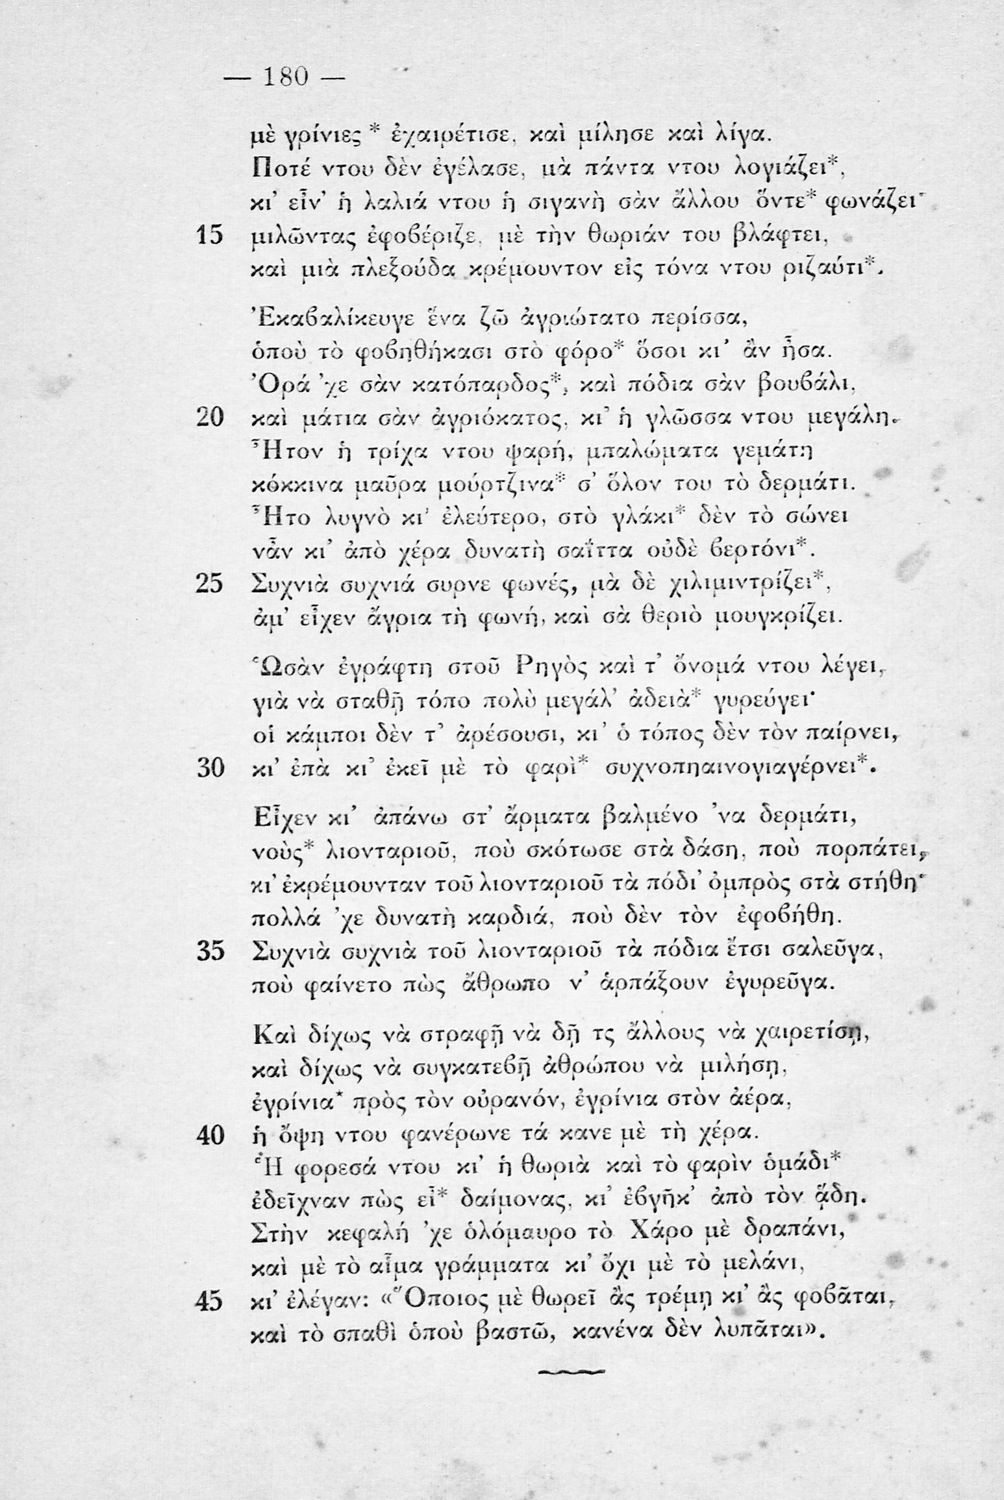 — 180 —
μὲ γρίνιες * ἐχαιρέτισε, καὶ μίλησε καὶ λίγα.
Ποτέ ντου δὲν ἐγέλασε, μὰ πάντα ντου λογιάζει*,
κι’ εἶν’ ἡ λαλιά ντου ἡ σιγανὴ σὰν ἄλλου ὄντε* φωνάζει·
15 μιλῶντας ἐφοβέριζε, μὲ τὴν θωριάν του βλάφτει,
καὶ μιὰ πλεξούδα κρέμουντον εἰς τόνα ντου ριζαύτι*.
Ἐκαβαλίκευγε ἕνα ζῶ ἀγριώτατο περίσσα,
ὁποὺ τὸ φοβηθήκασι στὸ φόρο* ὅσοι κι’ ἂν ἦσα.
Ὀρά ’χε σὰν κατόπαρδος*, καὶ πόδια σὰν βουβάλι,
20 καὶ μάτια σὰν ἀγριόκατος, κι’ ἡ γλῶσσα ντου μεγάλη.
Ἦτον ἡ τρίχα ντου ψαρή, μπαλώματα γεμάτη
κόκκινα μαῦρα μούρτζινα* σ’ ὅλον του τὸ δερμάτι.
Ἦτο λυγνὸ κι’ ἐλεύτερο, στὸ γλάκι* δὲν τὸ σώνει
νἆν κι’ ἀπὸ χέρα δυνατὴ σαΐττα οὐδὲ βερτόνι*.
25 Συχνιὰ συχνιά συρνε φωνές, μὰ δὲ χιλιμιντρίζει*,
ἀμ’ εἶχεν ἄγρια τὴ φωνή, καὶ σὰ θεριὸ μουγκρίζει.
Ὡσὰν ἐγράφτη στοῦ Ρηγὸς καὶ τ’ ὄνομά ντου λέγει,
γιὰ νὰ σταθῇ τόπο πολὺ μεγάλ’ ἀδειὰ* γυρεύγει·
οἱ κάμποι δὲν τ’ ἀρέσουσι, κι’ ὁ τόπος δὲν τὸν παίρνει,
30 κι’ ἐπὰ κι’ ἐκεῖ μὲ τὸ φαρὶ* συχνοπηαινογιαγέρνει*.
Εἶχεν κι’ ἀπάνω στ’ ἄρματα βαλμένο ’να δερμάτι,
νοὺς* λιονταριοῦ, ποὺ σκότωσε στὰ δάση, ποὺ πορπάτει,
κι’ ἐκρέμουνταν τοῦ λιονταριοῦ τὰ πόδι’ ὀμπρὸς στὰ στήθη·
πολλά ’χε δυνατὴ καρδιά, ποὺ δὲν τὸν ἐφοβήθη.
35 Συχνιὰ συχνιὰ τοῦ λιονταριοῦ τὰ πόδια ἔτσι σαλεῦγα,
ποὺ φαίνετο πὼς ἄθρωπο ν’ ἁρπάξουν ἐγυρεῦγα.
Καὶ δίχως νὰ στραφῇ νὰ δῇ τς ἄλλους νὰ χαιρετίσῃ,
καὶ δίχως νὰ συγκατεβῇ ἀθρώπου νὰ μιλήσῃ,
ἐγρίνια* πρὸς τὸν οὐρανόν, ἐγρίνια στὸν ἀέρα,
40 ἡ ὄψη ντου φανέρωνε τά κανε μὲ τὴ χέρα.
Ἡ φορεσά ντου κι’ ἡ θωριὰ καὶ τὸ φαρὶν ὁμάδι*
ἐδεῖχναν πὼς εἶ* δαίμονας, κι’ ἐβγῆκ’ ἀπὸ τὸν ᾅδη.
Στὴν κεφαλή ’χε ὁλόμαυρο τὸ Χάρο μὲ δραπάνι,
καὶ μὲ τὸ αἷμα γράμματα κι’ ὄχι μὲ τὸ μελάνι,
45 κι’ ἐλέγαν: «Ὅποιος μὲ θωρεῖ ἂς τρέμῃ κι’ ἂς φοβᾶται,
καὶ τὸ σπαθὶ ὁποὺ βαστῶ, κανένα δὲν λυπᾶται».